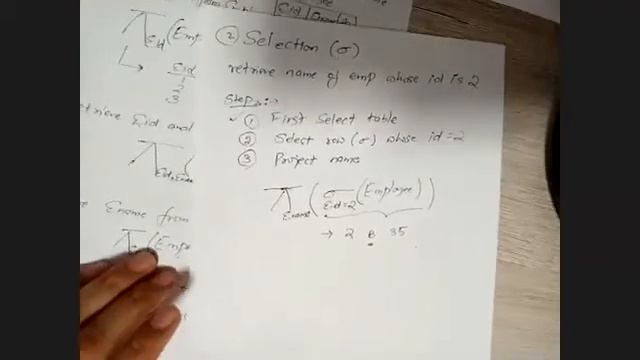 Eid
π Eid (Emp
Eid
1
2
3
retrieve Eid and
π
Ename from
π (Emp
② Selection (σ)
retrieve name of emp whose id is 2
Steps:-
① First Select table
② Select row (σ) whose id = 2
③ Project name
π Ename ( σ Eid=2 (Employee) )
→ 2 B 35